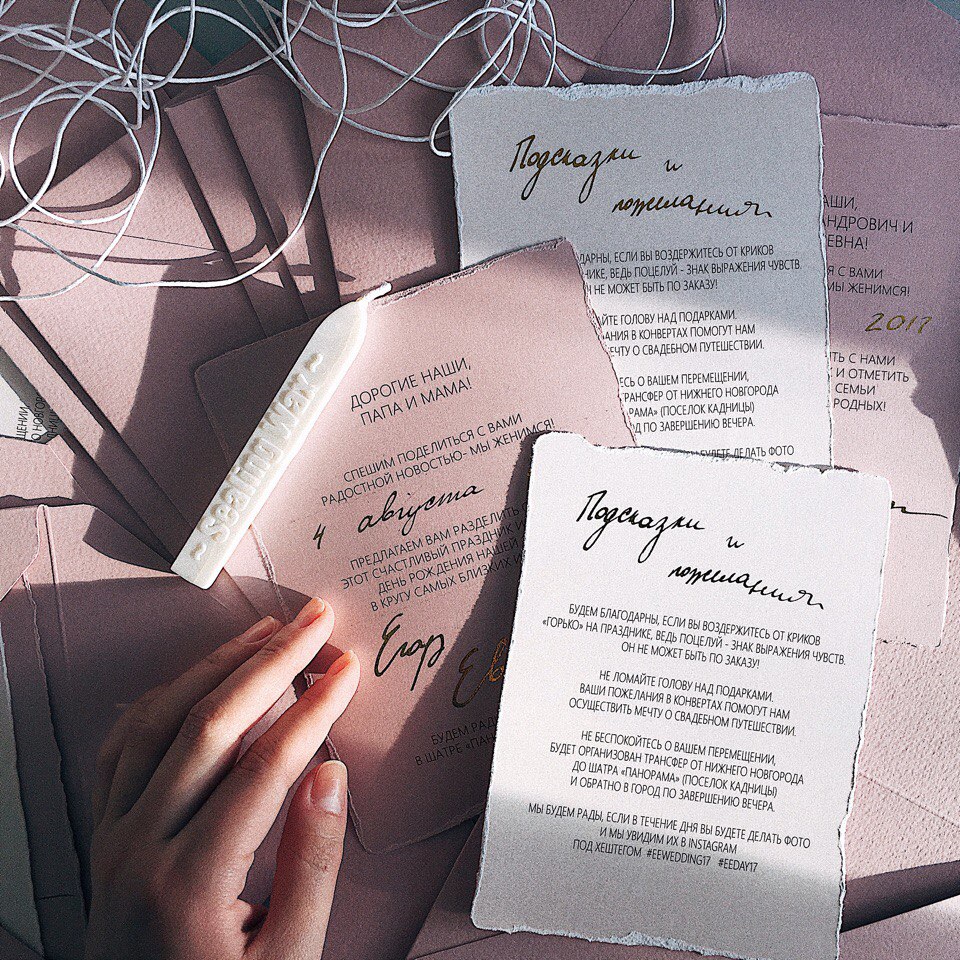 Подсказки и
пожелания
ДАРНЫ, ЕСЛИ ВЫ ВОЗДЕРЖИТЕСЬ ОТ КРИКОВ
НИКЕ, ВЕДЬ ПОЦЕЛУЙ - ЗНАК ВЫРАЖЕНИЯ ЧУВСТВ.
ОН НЕ МОЖЕТ БЫТЬ ПО ЗАКАЗУ!
МАЙТЕ ГОЛОВУ НАД ПОДАРКАМИ.
АНИЯ В КОНВЕРТАХ ПОМОГУТ НАМ
МЕЧТУ О СВАДЕБНОМ ПУТЕШЕСТВИИ.
ЕСЬ О ВАШЕМ ПЕРЕМЕЩЕНИИ,
ТРАНСФЕР ОТ НИЖНЕГО НОВГОРОДА
ОРАМА» (ПОСЕЛОК КАДНИЦЫ)
ОД ПО ЗАВЕРШЕНИЮ ВЕЧЕРА.
БУДЕТЕ ДЕЛАТЬ ФОТО
АШИ,
АНДРОВИЧ И
ЕВНА!
Я С ВАМИ
МЫ ЖЕНИМСЯ!
2017
ТЬ С НАМИ
К И ОТМЕТИТЬ
СЕМЬИ
РОДНЫХ!
ДОРОГИЕ НАШИ,
ПАПА И МАМА!
СПЕШИМ ПОДЕЛИТЬСЯ С ВАМИ
РАДОСТНОЙ НОВОСТЬЮ- МЫ ЖЕНИМСЯ!
4 августа
ПРЕДЛАГАЕМ ВАМ РАЗДЕЛИТЬ
ЭТОТ СЧАСТЛИВЫЙ ПРАЗДНИК И
ДЕНЬ РОЖДЕНИЯ НАШЕЙ
В КРУГУ САМЫХ БЛИЗКИХ И
Егор Ев
БУДЕМ РАД
В ШАТРЕ «ПАНО
~ Sealing Wax ~
Подсказки и
пожелания
БУДЕМ БЛАГОДАРНЫ, ЕСЛИ ВЫ ВОЗДЕРЖИТЕСЬ ОТ КРИКОВ
«ГОРЬКО» НА ПРАЗДНИКЕ, ВЕДЬ ПОЦЕЛУЙ - ЗНАК ВЫРАЖЕНИЯ ЧУВСТВ.
ОН НЕ МОЖЕТ БЫТЬ ПО ЗАКАЗУ!
НЕ ЛОМАЙТЕ ГОЛОВУ НАД ПОДАРКАМИ.
ВАШИ ПОЖЕЛАНИЯ В КОНВЕРТАХ ПОМОГУТ НАМ
ОСУЩЕСТВИТЬ МЕЧТУ О СВАДЕБНОМ ПУТЕШЕСТВИИ.
НЕ БЕСПОКОЙТЕСЬ О ВАШЕМ ПЕРЕМЕЩЕНИИ,
БУДЕТ ОРГАНИЗОВАН ТРАНСФЕР ОТ НИЖНЕГО НОВГОРОДА
ДО ШАТРА «ПАНОРАМА» (ПОСЕЛОК КАДНИЦЫ)
И ОБРАТНО В ГОРОД ПО ЗАВЕРШЕНИЮ ВЕЧЕРА.
МЫ БУДЕМ РАДЫ, ЕСЛИ В ТЕЧЕНИЕ ДНЯ ВЫ БУДЕТЕ ДЕЛАТЬ ФОТО
И МЫ УВИДИМ ИХ В INSTAGRAM
ПОД ХЕШТЕГОМ #EEWEDDING17 #EEDAY17